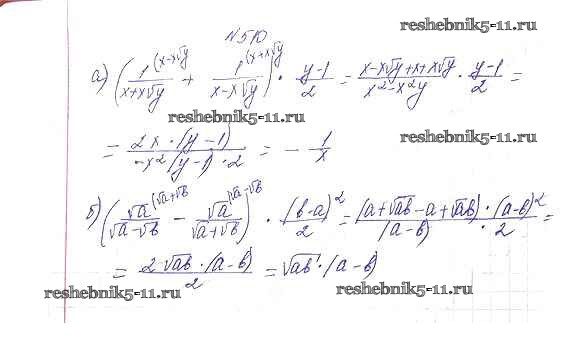 reshebnik5-11.ru
№510
а) (1^{(x-x√y}/(x+x√y) + 1^{(x+x√y}/(x-x√y)) · (y-1)/2 = (x-x√y+x+x√y)/(x²-x²y) · (y-1)/2 =
reshebnik5-11.ru reshebnik5-11.ru
= (2x·(y-1))/(-x²(y-1)·2) = -1/x
б) (√a^{(√a+√b}/(√a-√b) - √a^{(√a-√b}/(√a+√b)) · (b-a)²/2 = ((a+√ab-a+√ab)·(a-b)²)/((a-b)·2) =
= (2√ab·(a-b))/2 = √ab·(a-b)
reshebnik5-11.ru reshebnik5-11.ru